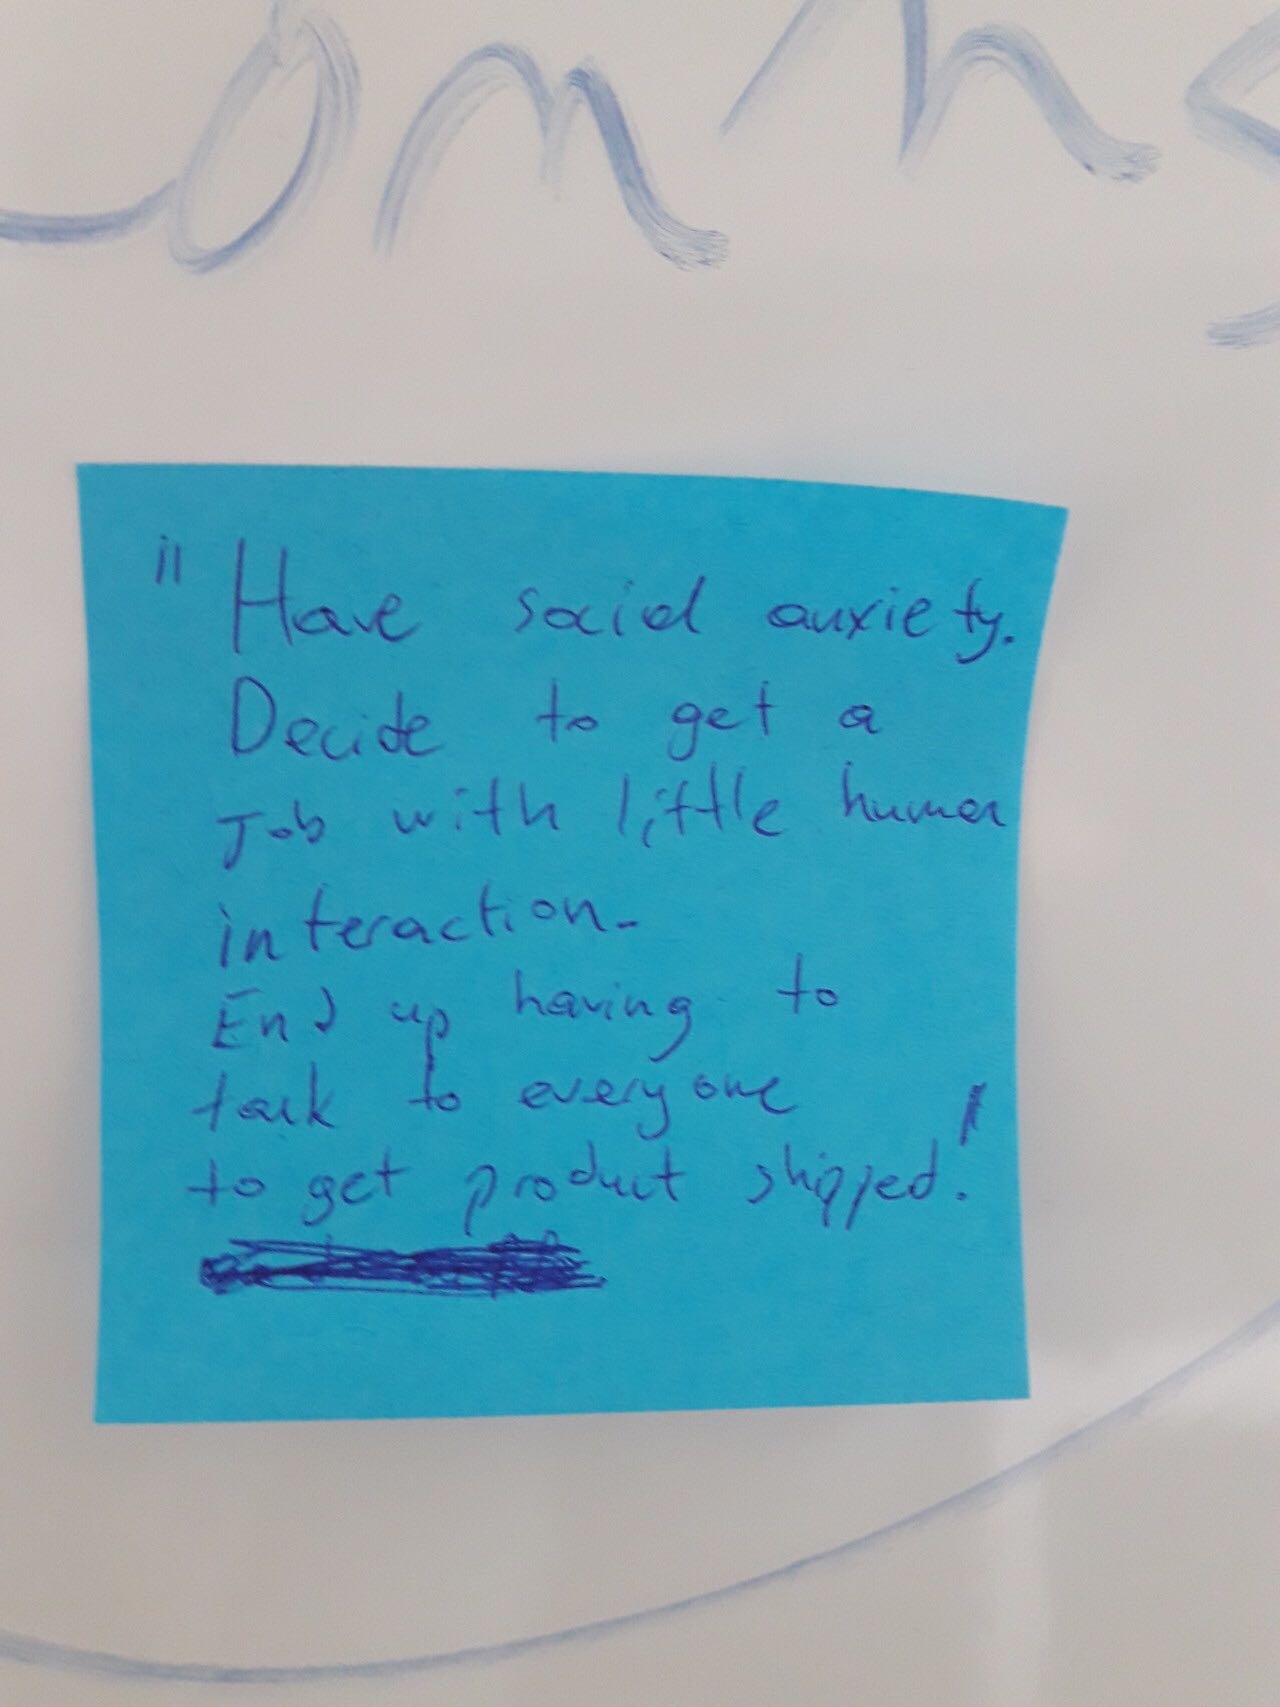 "Have social anxiety.
Decide to get a
Job with little human
interaction.
End up having to
talk to everyone
to get product shipped.'